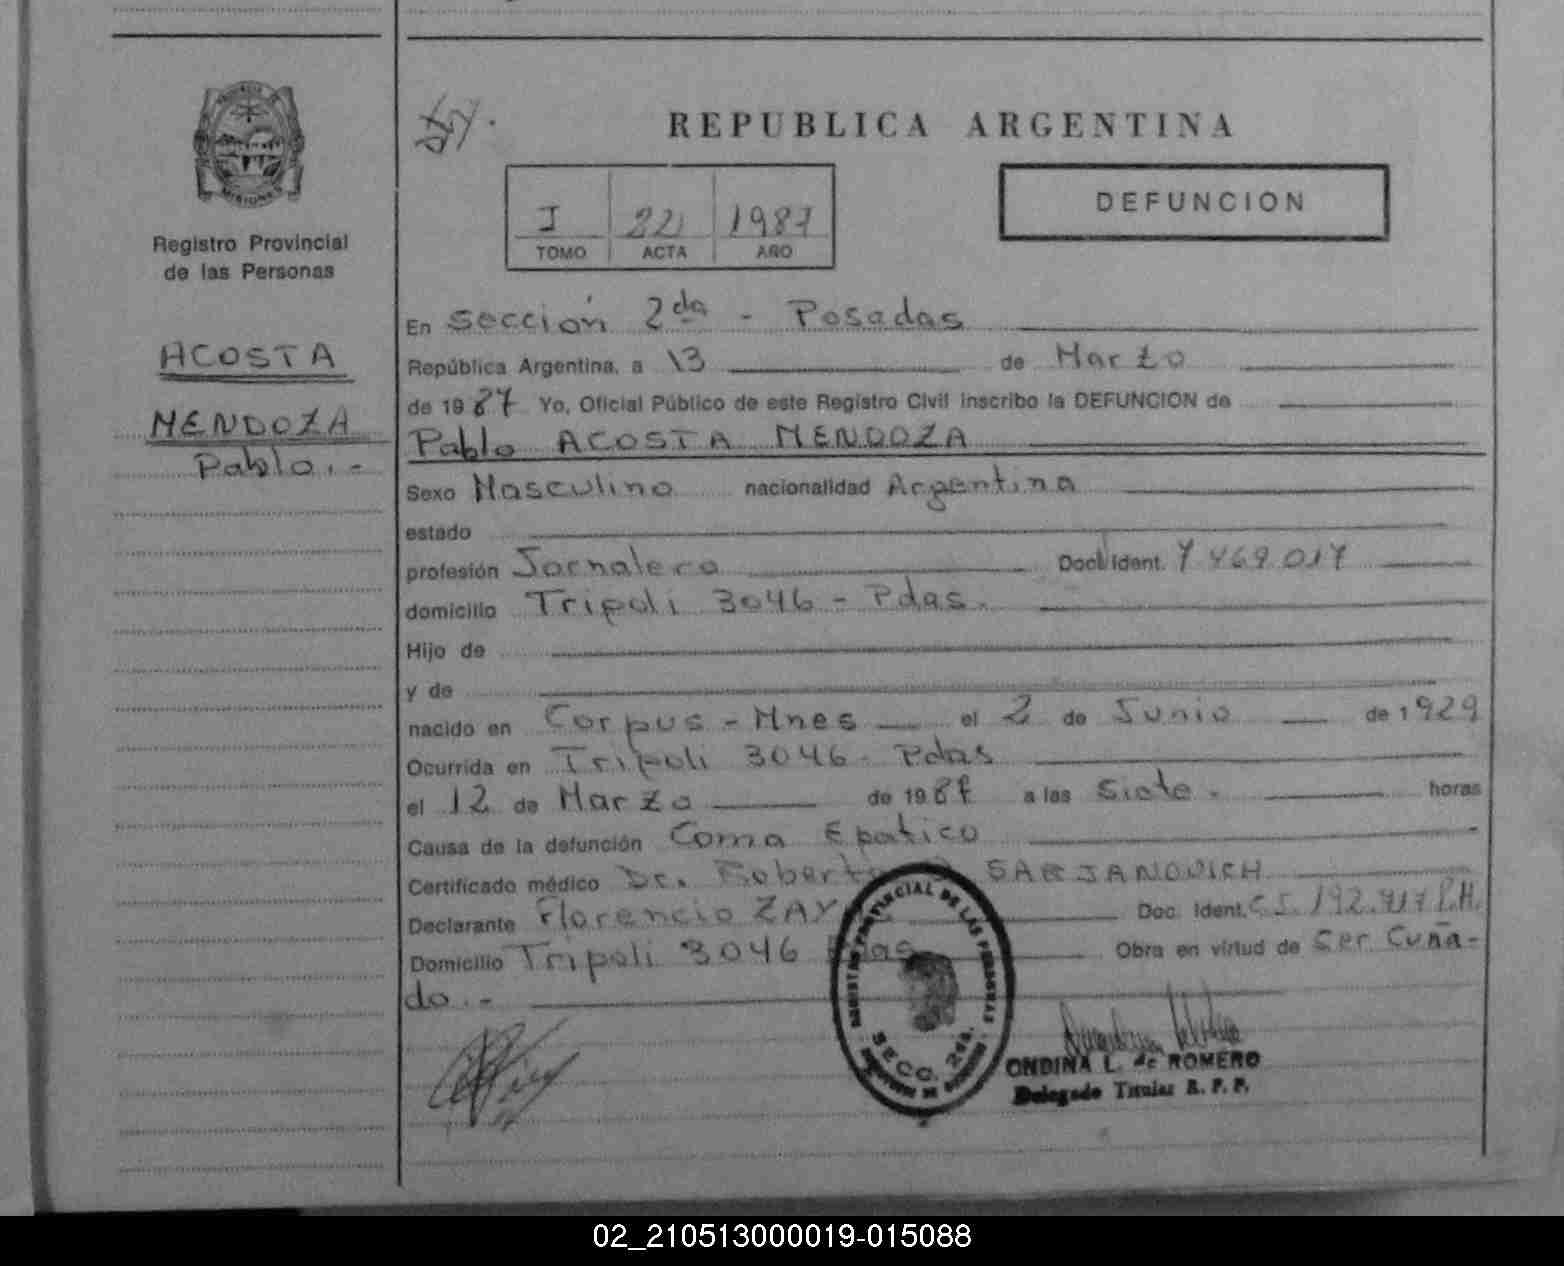 REPUBLICA ARGENTINA
PROVINCIA DE
MISIONES
Registro Provincial
de las Personas
I 221 1987
TOMO ACTA AÑO
DEFUNCION
ACOSTA
MENDOZA
Pablo.-
En Sección 2da - Posadas
República Argentina, a 13 de Marzo
de 1987 Yo, Oficial Público de este Registro Civil inscribo la DEFUNCION de
Pablo ACOSTA MENDOZA
Sexo Masculino nacionalidad Argentina
estado
profesión Jornalero Doc. Ident. 7 469.017
domicilio Tripoli 3046 - Pdas.
Hijo de
y de
nacido en Corpus - Mnes el 2 de Junio de 1929
Ocurrida en Tripoli 3046 - Pdas
el 12 de Marzo de 1987 a las Siete. horas
Causa de la defunción Coma Epatico
Certificado médico Dr. Roberto SARJANOVICH
Declarante Florencio Doc. Ident. C.I. 192.917 P.M.
Domicilio Tripoli 3046 Pdas Obra en virtud de Ser Cuña-
do.-
REGISTRO PROVINCIAL DE LAS PERSONAS
SECC. 2da.
ONDINA L. de ROMERO
Delegado Titular R. P. P.
02_210513000019-015088